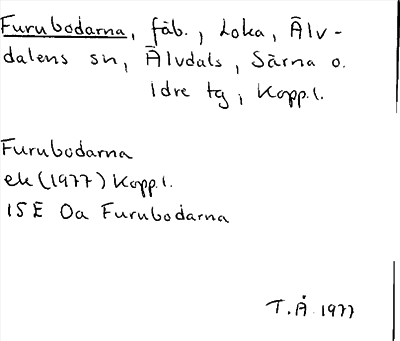 Furubodarna, fäb., Loka, Älv-
dalens sn, Älvdals, Särna o.
Idre tg, Kopp.l.
Furubodarna
ek (1977) Kopp.l.
15E 0a Furubodarna
T.Å 1977